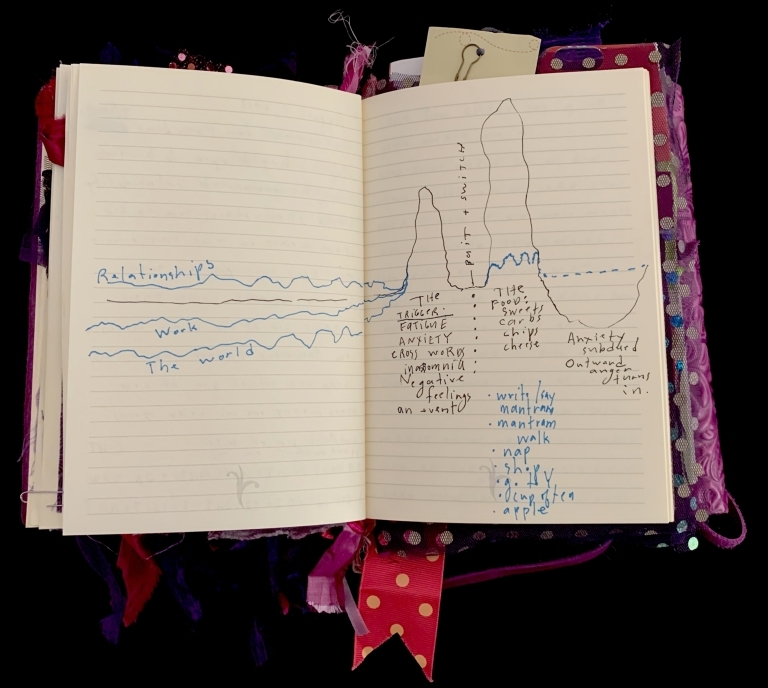 Relationships
Work
The world
+ SWITCH
THE
TRIGGER:
FATIGUE
ANXIETY
CROSS WORDS
insomnia
Negative
feelings
an event
THE
FOOD:
sweets
carbs
chips
cheese
Anxiety
subdued
Outward
anger
turns
in.
• write/say
mantram
• mantram
walk
• nap
• shop
• cup of tea
• apple